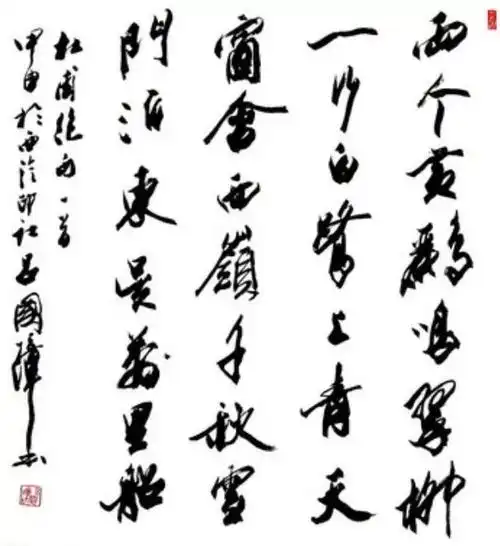 兩个黄鸝鳴翠柳
一行白鷺上青天
窗含西嶺千秋雪
門泊東吳萬里船
杜甫絕句一首
甲申於西泠印社吕國璋书